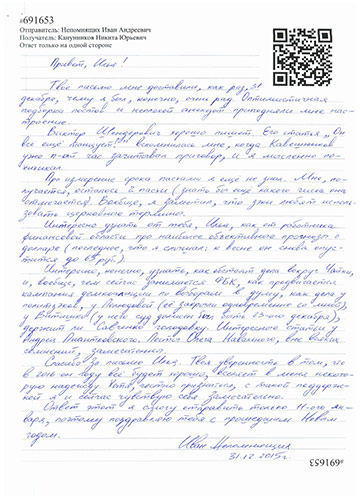 #691653
Отправитель: Непомнящих Иван Андреевич
Получатель: Канунников Никита Юрьевич
Ответ только на одной стороне
Привет, Илья!
Твоё письмо мне доставили, как раз, 31
декабря, чему я был, конечно, очень рад. Оптимистичная
подборка постов и неплохой анекдот приподняли мне нас-
троение.
Виктор Шендерович хорошо пишет. Его статья „Он
всё ещё танцует!" вспомнилась мне, когда Кавешников
уже n-ый час зачитывал приговор, и я мысленно по-
Про измерение срока пасхами я ещё не знал. Мне, по-
лучается, осталось 2 пасхи (знать бы ещё какого числа она
отмечается). Вообще, я заметил, что зэки любят исполь-
зовать церковную термино.
Интересно узнать от тебя, Илья, как от работника
финансовой области про наиболее объективные прогнозы о
долларе (последнее, что я слышал: к весне он снова опус-
тится до 65 руб.)
Интересно, конечно, узнать, как обстоят дела вокруг Чайки,
и, вообще, чем сейчас занимается ФБК, как продвигается
кампания демкоалиции по выборам в Думу, как дела у
(её закрыли одновременно со мной),
у (у него суд должен был быть 23-ого декабря),
держит ли Савченко голодовку. Интересны статьи у
Андрея Пионтковского. Посты Олега Навального, вне всяких
сомнений, замечательны.
Спасибо за пожелания, Илья. Твоя уверенность в том, что
в 2016-ом году всё будет хорошо, вселяет в меня некото-
рую надежду. Хотя, честно признаться, с такой поддерж-
кой я и сейчас чувствую себя замечательно.
Ответ этот я смогу отправить только 11-ого ян-
варя, поэтому поздравляю тебя с прошедшим Новым
годом.
Иван Непомнящих
31.12.2015г.
#691653